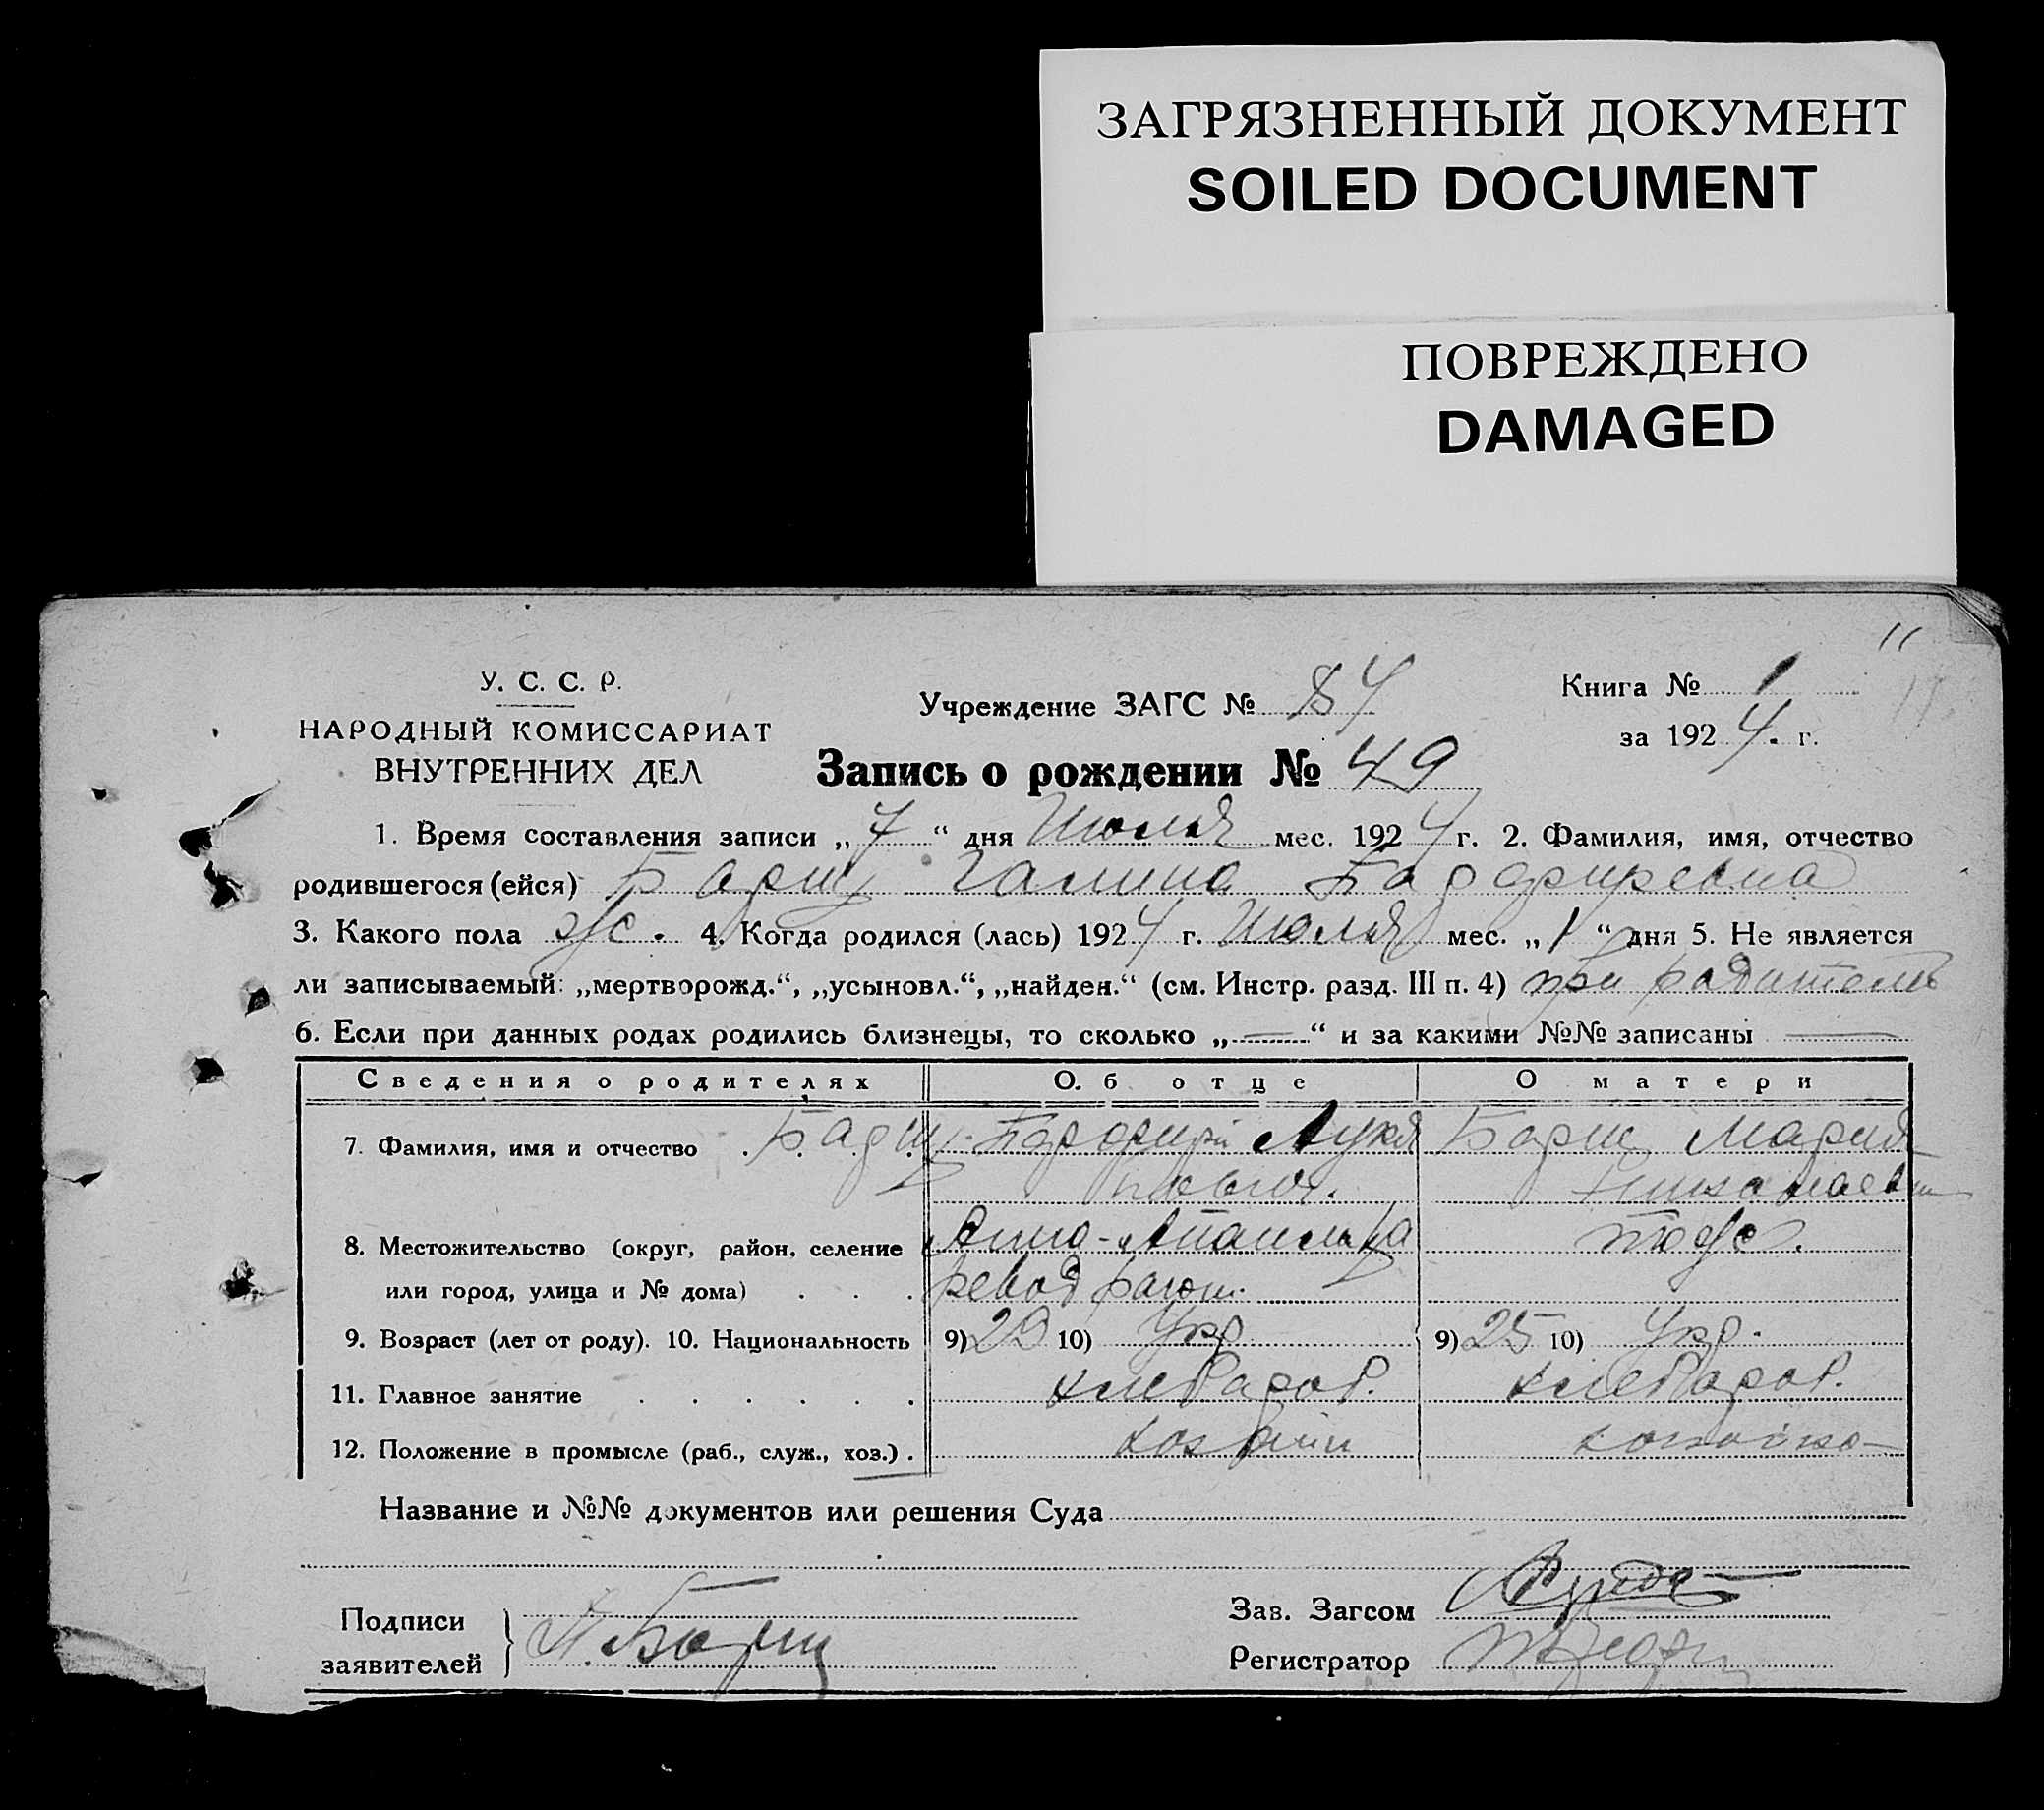 ЗАГРЯЗНЕННЫЙ ДОКУМЕНТ
SOILED DOCUMENT
ПОВРЕЖДЕНО
DAMAGED
11
У. С. С. Р.
НАРОДНЫЙ КОМИССАРИАТ
ВНУТРЕННИХ ДЕЛ
Учреждение ЗАГС № 84
Книга № 1
за 1924. г.
Запись о рождении № 49
1. Время составления записи „7“ дня Июля мес. 1924 г. 2. Фамилия, имя, отчество
родившегося (ейся) Барищ Галина
3. Какого пола ж. 4. Когда родился (лась) 1924 г. Июля мес. „1“ дня 5. Не является
ли записываемый: „мертворожд.“, „усыновл.“, „найден.“ (см. Инстр. разд. III п. 4) при родителе
6. Если при данных родах родились близнецы, то сколько „—“ и за какими №№ записаны —
Сведения о родителях Об отце О матери
7. Фамилия, имя и отчество Барищ Барищ Мария
Николаевн
8. Местожительство (округ, район, селение тоже.
или город, улица и № дома)
9. Возраст (лет от роду). 10. Национальность 9) 29 10) Укр 9) 25 10) Укр.
11. Главное занятие хлебароб. хлебароб.
12. Положение в промысле (раб., служ., хоз.) .
Название и №№ документов или решения Суда
Подписи
заявителей
Зав. Загсом
Регистратор